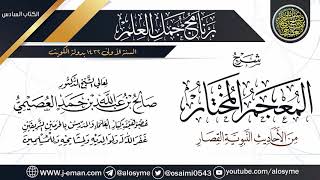 الكتاب السادس
برنامج جمل العلم
السنة الأولى ١٤٣٦ بدولة الكويت
شرح
المعجم المختار
من الأحاديث النبوية القصار
لمعالي الشيخ الدكتور
صالح بن عبد الله بن حمد العصيمي
عضو هيئة كبار العلماء والمدرس بالحرمين الشريفين
غفر الله له ولوالديه ولمشايخه وللمسلمين
www.j-eman.com
@alosyme
@osaimi0543
@alosyme
youtube.com/alosyme